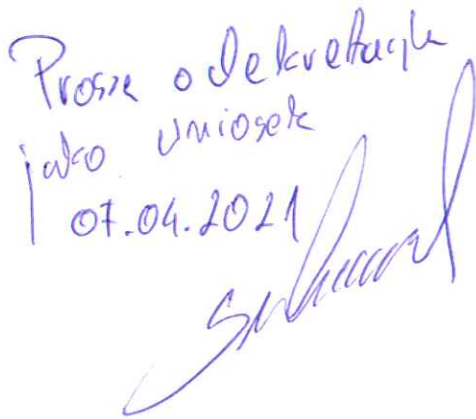 Proszę o dekretację
jako wniosek
07.04.2021